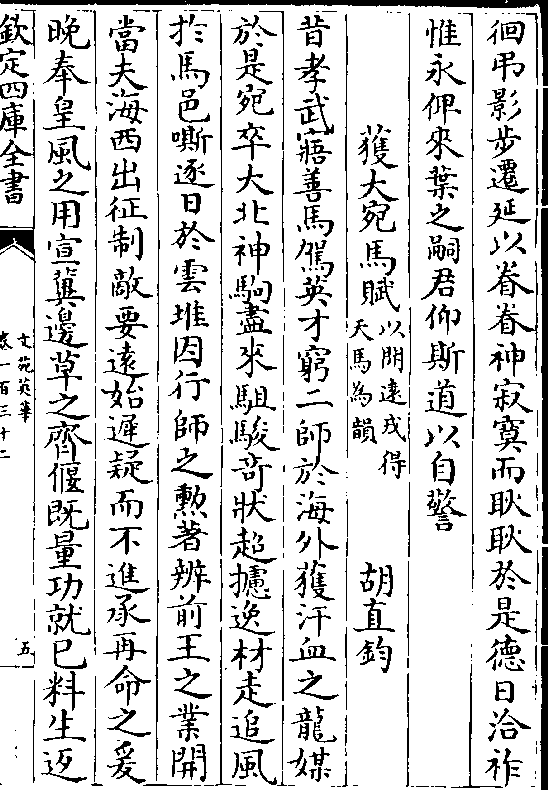 徊弔影步遷延以眷眷神寂寞而耿耿於是德日洽祚
惟永俾來葉之嗣君仰斯道以自警
獲大宛馬賦以開遠戎得天馬為韻 胡直鈞
昔孝武寤善馬駕英才窮二師於海外獲汗血之龍媒
於是宛卒大北神駒盡來駔駿奇狀超攄逸材走追風
於馬邑嘶逐日於雲堆因行師之勲著辨前王之業開
當夫海西出征制敵要遠始遲疑而不進承再命之爰
晚奉皇風之用宣冀邊草之齊偃既量功就已料生返
欽定四庫全書
文苑英華
卷一百三十二
五